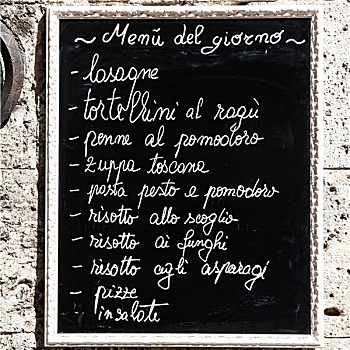 ~ Menū del giorno ~
- lasagne
- tortellini al ragù
- penne al pomodoro
- zuppa toscana
- pasta pesto e pomodoro
- risotto allo scoglio
- risotto ai funghi
- risotto agli asparagi
- pizze
insalate